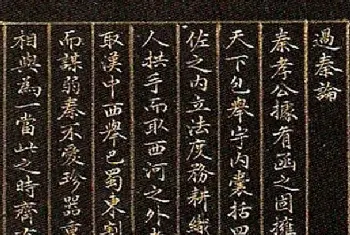 過秦論
秦孝公據肴函之固擁
天下包舉宇內囊括四
佐之內立法度務耕織
人拱手而取西河之外
取漢中西舉巴蜀東割
而謀弱秦不愛珍器重
相與為一當此之時齊